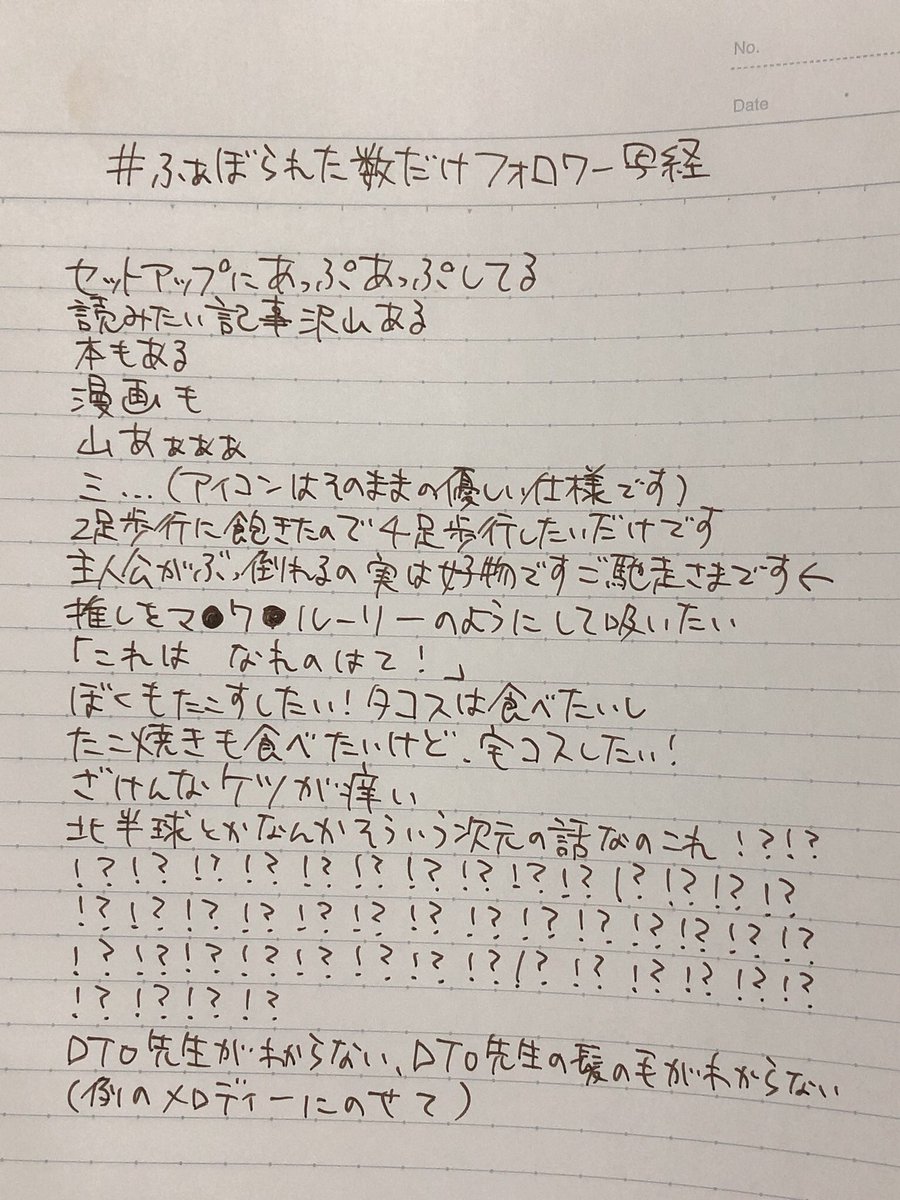 No.
Date
#ふぁぼられた数だけフォロワー写経
セットアップにあっぷあっぷしてる
読みたい記事沢山ある
本もある
漫画も
山あぁぁぁ
三…(アイコンはそのままの優しい仕様です)
2足歩行に飽きたので4足歩行したいだけです
主人公がぶっ倒れるの実は好物ですご馳走さまです←
推しをマ●ワ●ルーリーのようにして吸いたい
「これは なれのはて!」
ぼくもたこすしたい!タコスは食べたいし
たこ焼きも食べたいけど、宅コスしたい!
ざけんなケツが痒い
北半球とかなんかそういう次元の話なのこれ!?!?
!?!?!?!?!?!?!?!?!?!?!?!?!?!?
!?!?!?!?!?!?!?!?!?!?!?!?!?!?
!?!?!?!?!?!?!?!?!?!?!?!?!?!?
!?!?!?!?
DTO先生がわからない、DTO先生の髪の毛がわからない
(例のメロディーにのせて)